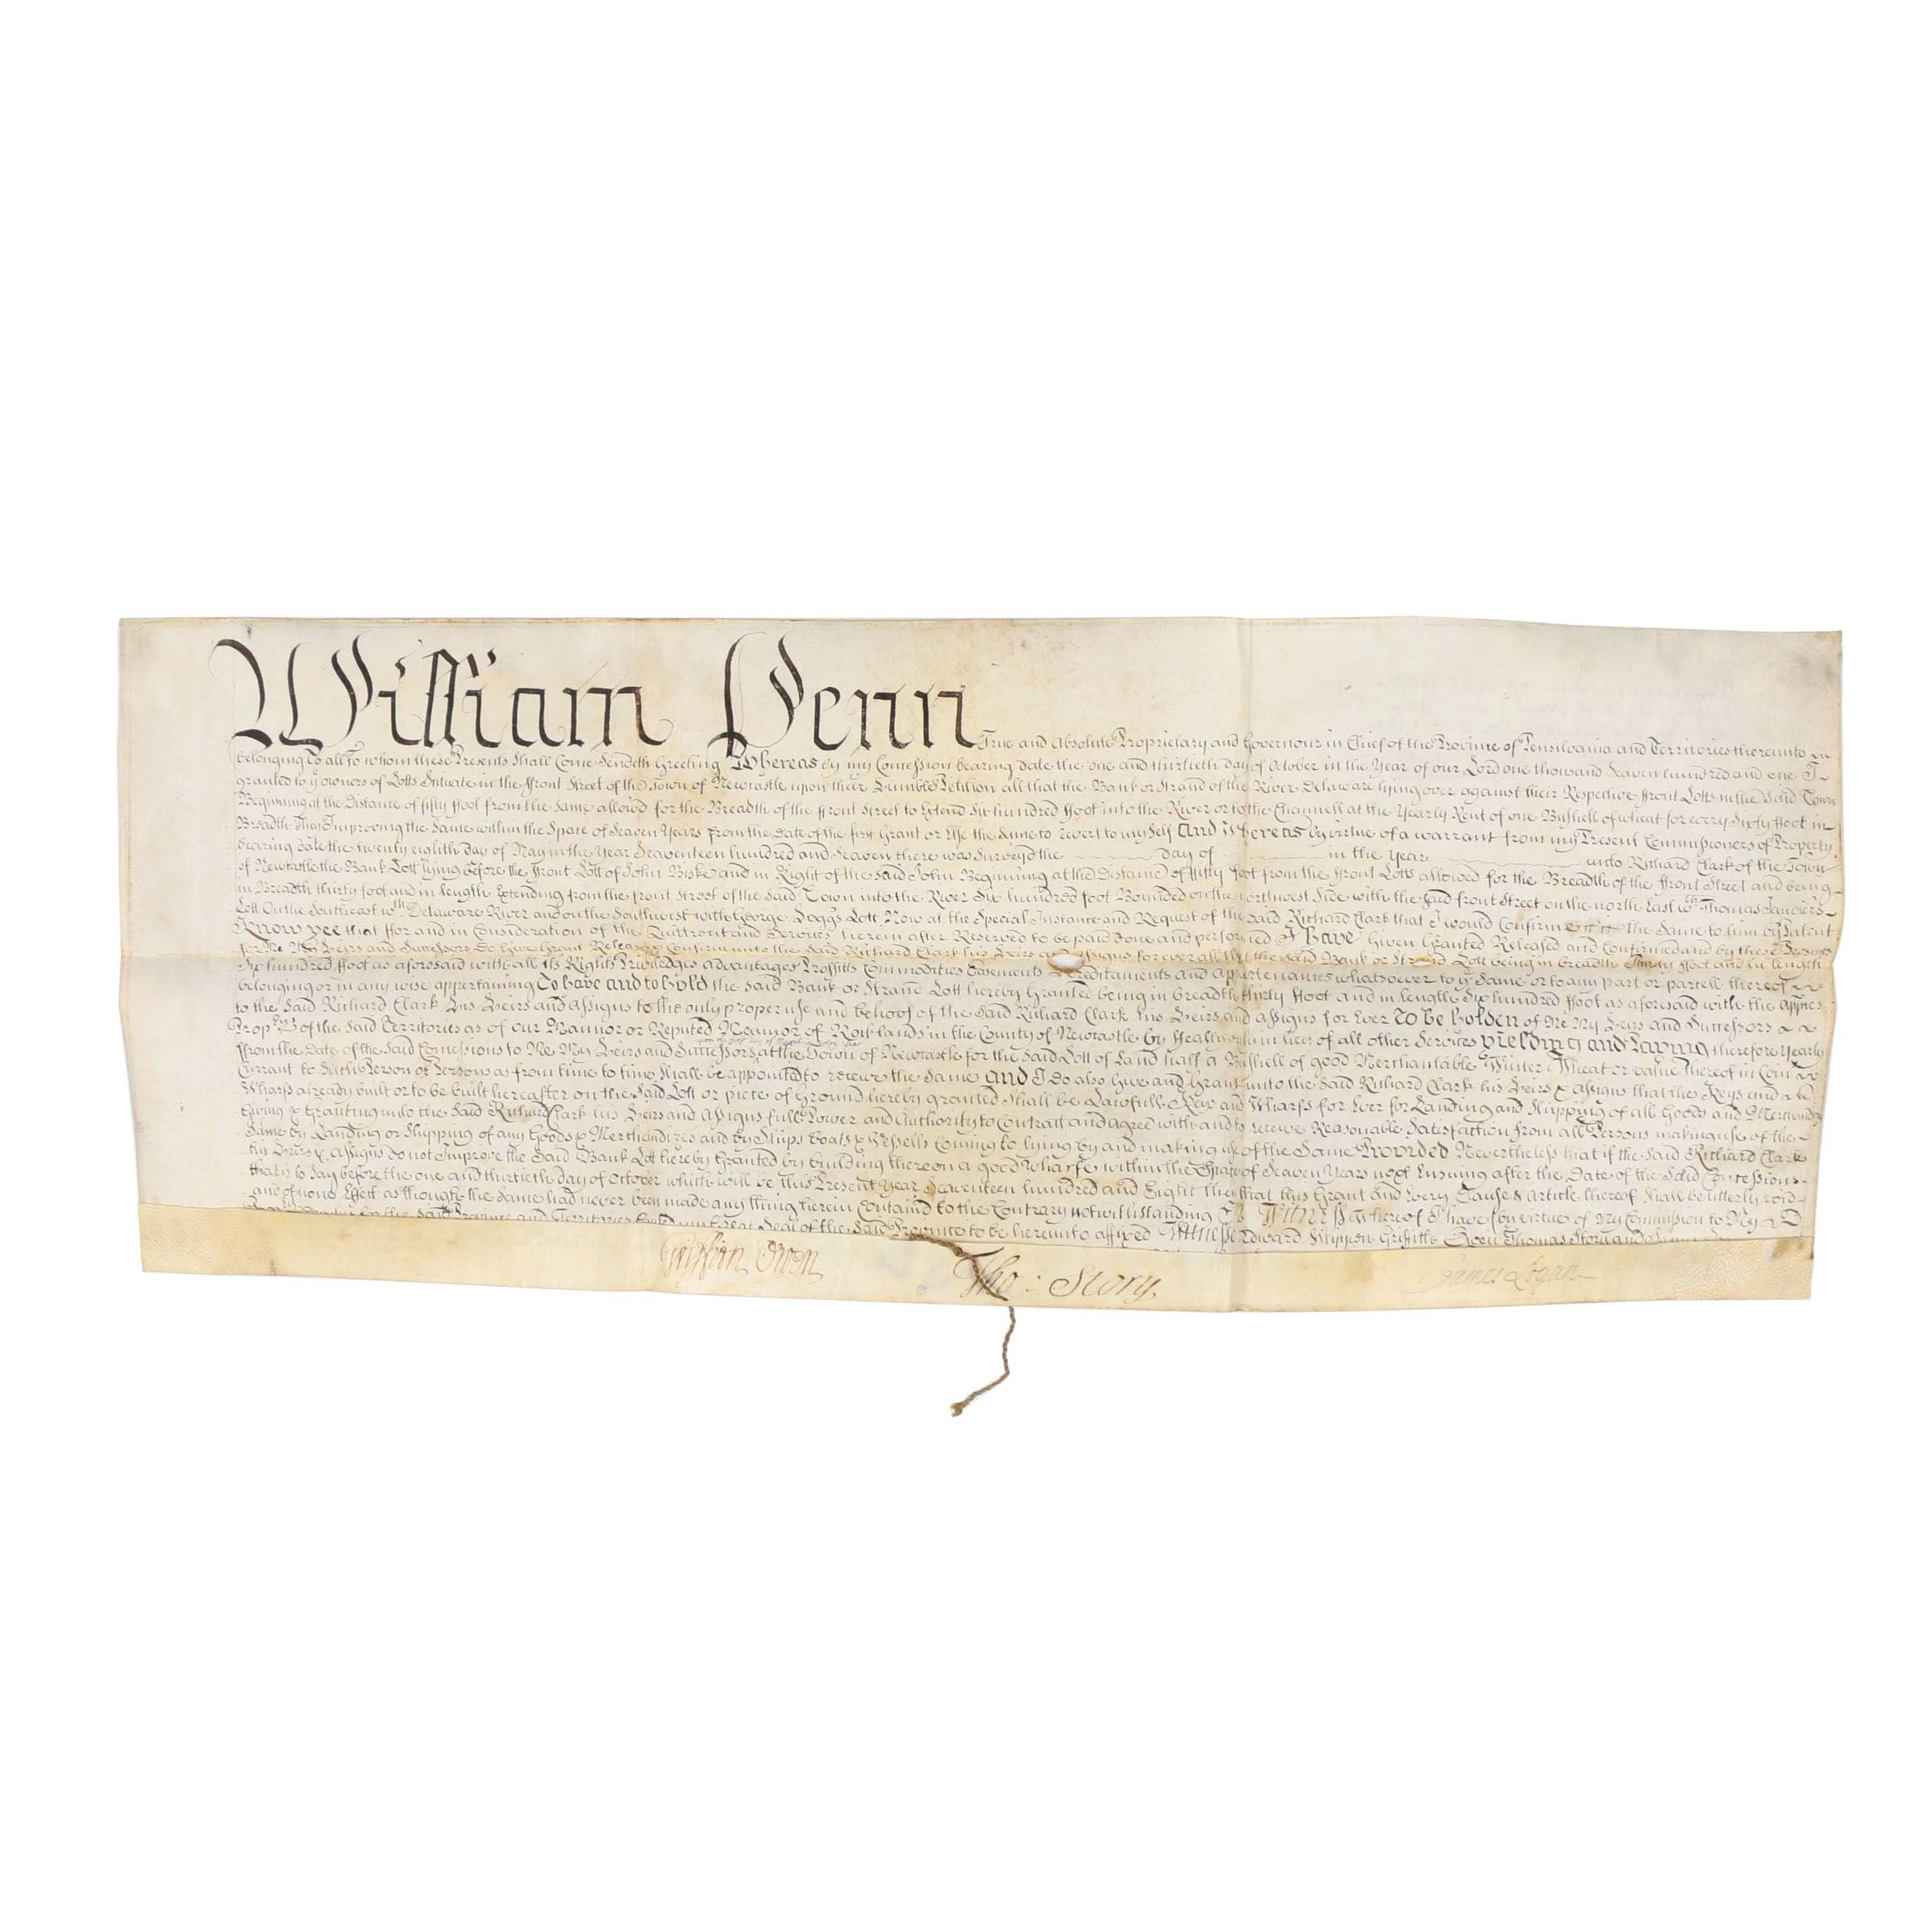 William Penn True and Absolute Proprietary and Governour in Chief of the Province of Pensilvania and Territories thereunto
belonging To all To whom these Presents Shall Come Sendeth Greeting Whereas by my Concession bearing date the one and thirtieth day of October in the Year of our Lord one thousand Seaven hundred and one I
granted to ye owners of Lotts Scituate in the ffront Street of the Town of Newcastle upon their Humble Petition all that the Bank or Strand of the River Delaware lying over against their Respective front Lotts in the Said Town
Beginning at the Distance of fifty ffoot from the Same allowd for the Breadth of the ffront Street to Extend Six hundred ffoot into the River or to the Channell at the Yearly Rent of one Bushell of wheat for every Sixty ffoot in
Breadth They Improving the Same within the Space of Seaven Years from the Date of the first Grant or Else the Same to revert to my Self And Whereas by virtue of a warrant from my Present Commissioners of Property
bearing date the twenty eighth day of May in the Year Seaventeen hundred and Seaven there was Surveyd the day of in the year unto Richard Clark of the Town
of Newcastle the Bank Lott lying before the ffront Lott of John Biske and in Right of the Said John Beginning at the Distance of ffifty ffoot from the ffront Lotts allowed for the Breadth of the ffront Street and being
in Breadth thirty foot and in length Extending from the front Street of the Said Town into the River Six hundred foot Bounded on the northwest Side with the Said front Street on the north East wth Thomas Janvier's
Lott On the Southeast wth Delaware River and on the Southwest with George Hogg's Lott Now at the Special Instance and Request of the Said Richard Clark that I would Confirme the Same to him by Patent
Know yee that ffor and in Consideration of the Quittrent and Services herein after Reserved to be paid done and performed I have Given Granted Released and Confirmed and by these Presents
for Me My Heirs and Successors Do Give Grant Release & Confirm unto the Said Richard Clark his Heirs and Assigns for ever all that the Said Bank or Strand Lott being in breadth Thirty ffoot and in length
Six hundred ffoot as aforesaid with all its Rights Priviledges advantages Proffitts Commodities Easements Hereditaments and appurtenances whatsoever to ye Same or to any part or parcell thereof
belonging or in any wise appertaining To have and to hold the Said Bank or Strand Lott hereby Granted being in breadth thirty ffoot and in length Six hundred ffoot as aforesaid with the appces
to the Said Richard Clark his Heirs and Assigns to the only proper use and behoof of the Said Richard Clark his Heirs and assigns for Ever To be holden of Me My Heirs and Successors
of the Said Territories as of our Mannor or Reputed Mannor of Rowlands in the County of Newcastle by Fealty in lieu of all other Services Yielding and Paying therefore Yearly
from the Date of the Said Concessions to Me My Heirs and Successors at the Town of Newcastle for the Said Lott of Land half a Bushell of good Merchantable Winter Wheat or value thereof in Coin
Currant to Such Person or Persons as from time to time Shall be appointed to receive the Same And I do also Give and Grant unto the Said Richard Clark his Heirs & assigns that the Keys and
Wharfs already built or to be built hereafter on the Said Lott or piece of Ground hereby granted Shall be Lawfull Keys and Wharfs for Ever for Landing and Shipping of all Goods and Merchandize
Giving & Granting unto the Said Richard Clark his Heirs and Assigns full Power and Authority to Contract and agree with and to receive Reasonable Satisfaction from all Persons making use of the
Same by Landing or Shipping of any Goods & Merchandizes and by Ships Boats & Vessells Coming to lying by and making use of the Same Provided Nevertheless that if the Said Richard Clark
his Heirs & Assigns do not Improve the Said Bank Lott hereby Granted by building thereon a good Wharfe within the Space of Seaven Years next Ensuing after the Date of the Said Concessions
that is to Say before the one and thirtieth day of October which will be this Present Year Seaventeen hundred and Eight Then that this Grant and Every Clause & Article thereof Shall be utterly void
and of none Effect as though the Same had never been made any thing herein Containd to the Contrary notwithstanding In Witness whereof I have (by virtue of My Commission to My
the Said Province and Territories Great Seal of the Said Province to be hereunto affixed Witness Edward Shippen Griffith Owen Thomas Story and
Griffith Owen Tho: Story. James Logan